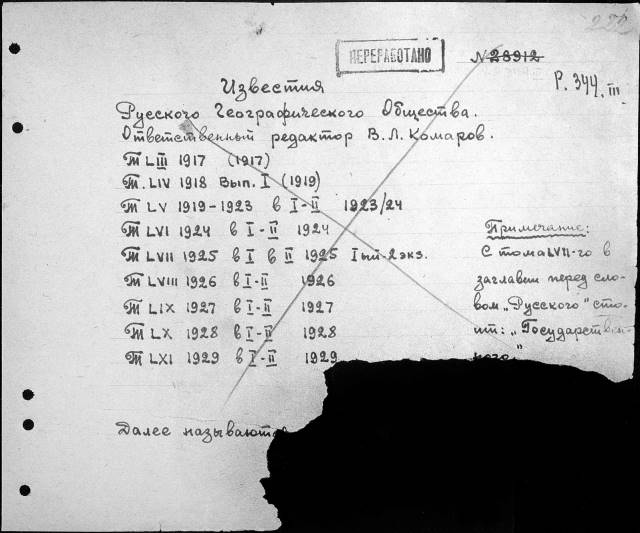 226
ПЕРЕРАБОТАНО
№ 28912
Р. 344. III
Известия
Русского Географического Общества.
Ответственный редактор В. Л. Комаров.
Т LIII 1917 (1917)
Т. LIV 1918 Вып. I (1919)
Т LV 1919-1923 в I-II 1923/24
Т LVI 1924 в I-II 1924
Т LVII 1925 в I в II 1925 Iый-2экз.
Т LVIII 1926 в I-II 1926
Т LIX 1927 в I-II 1927
Т LX 1928 в I-II 1928
Т LXI 1929 в I-II 1929
Примечание:
С тома LVII-го в
заглавии перед сло-
вом „Русского" сто-
ит: „Государствен-
ного"
Далее называются